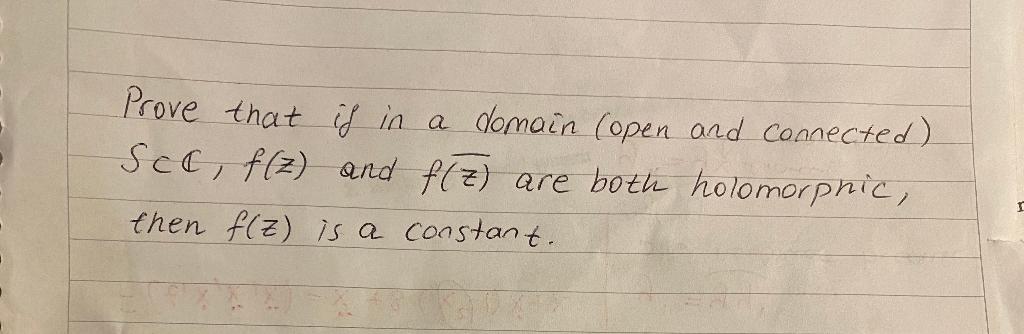 Prove that if in a domain (open and connected)
S⊂ℂ, f(z) and f(z̅) are both holomorphic,
then f(z) is a constant.